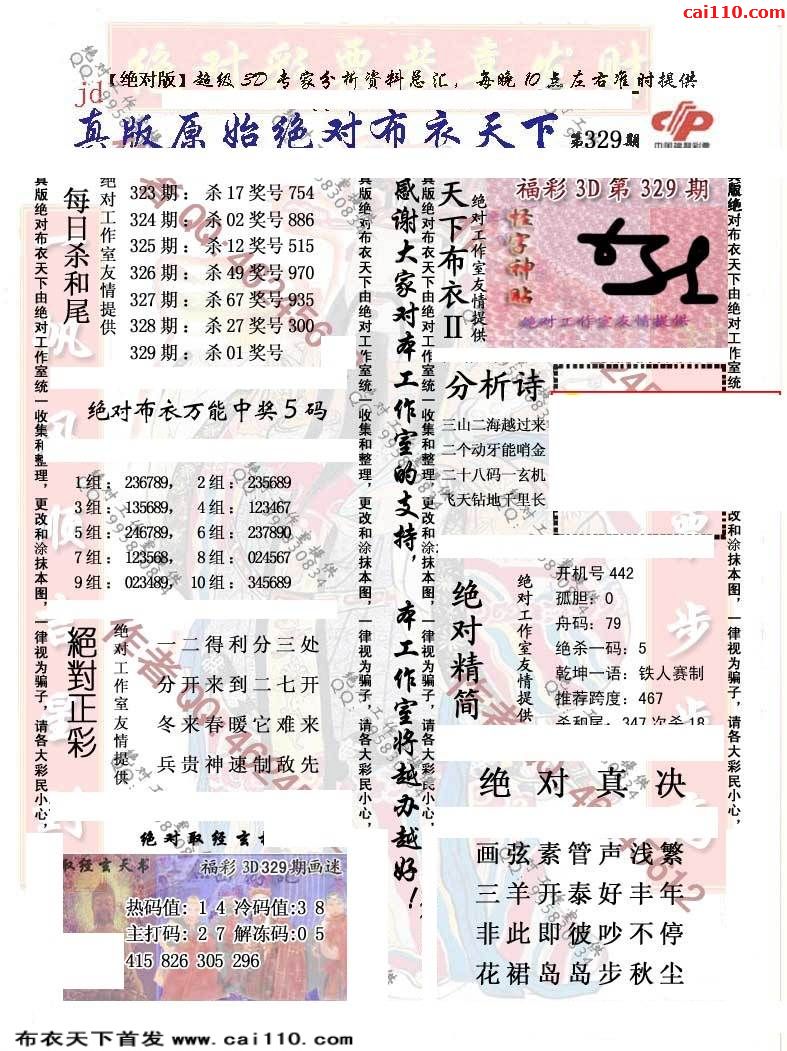 cai110.com
【绝对版】超级3D专家分析资料总汇，每晚10点左右准时提供
jd
真版原始绝对布衣天下 第329期
中国福利彩票
每日杀和尾
绝对工作室友情提供
323期：杀17奖号754
324期：杀02奖号886
325期：杀12奖号515
326期：杀49奖号970
327期：杀67奖号935
328期：杀27奖号300
329期：杀01奖号
绝对布衣万能中奖5码
1组：236789， 2组：235689
3组：135689， 4组：123467
5组：246789， 6组：237890
7组：123568， 8组：024567
9组：023489， 10组：345689
絕對正彩
绝对工作室友情提供
一二得利分三处
分开来到二七开
冬来春暖它难来
兵贵神速制敌先
取经玄天书
福彩3D329期画迷
热码值：1 4 冷码值:3 8
主打码：2 7 解冻码:0 5
415 826 305 296
真版绝对布衣天下由绝对工作室统一收集和整理，更改和涂抹本图，一律视为骗子，请各大彩民小心，
感谢大家对本工作室的支持，本工作室将越办越好！
真版绝对布衣天下由绝对工作室统一收集和整理，更改和涂抹本图，一律视为骗子，请各大彩民小心，
天下布衣II
绝对工作室友情提供
福彩3D第329期
怪字神贴
绝对工作室友情提供
分析诗
三山二海越过来
二个动牙能哨金
二十八码一玄机
飞天钻地千里长
绝对精简
绝对工作室友情提供
开机号 442
孤胆：0
舟码：79
绝杀一码：5
乾坤一语：铁人赛制
推荐跨度：467
杀和尾：347 次杀18
绝对真决
画弦素管声浅繁
三羊开泰好丰年
非此即彼吵不停
花裙岛岛步秋尘
布衣天下首发 www.cai110.com